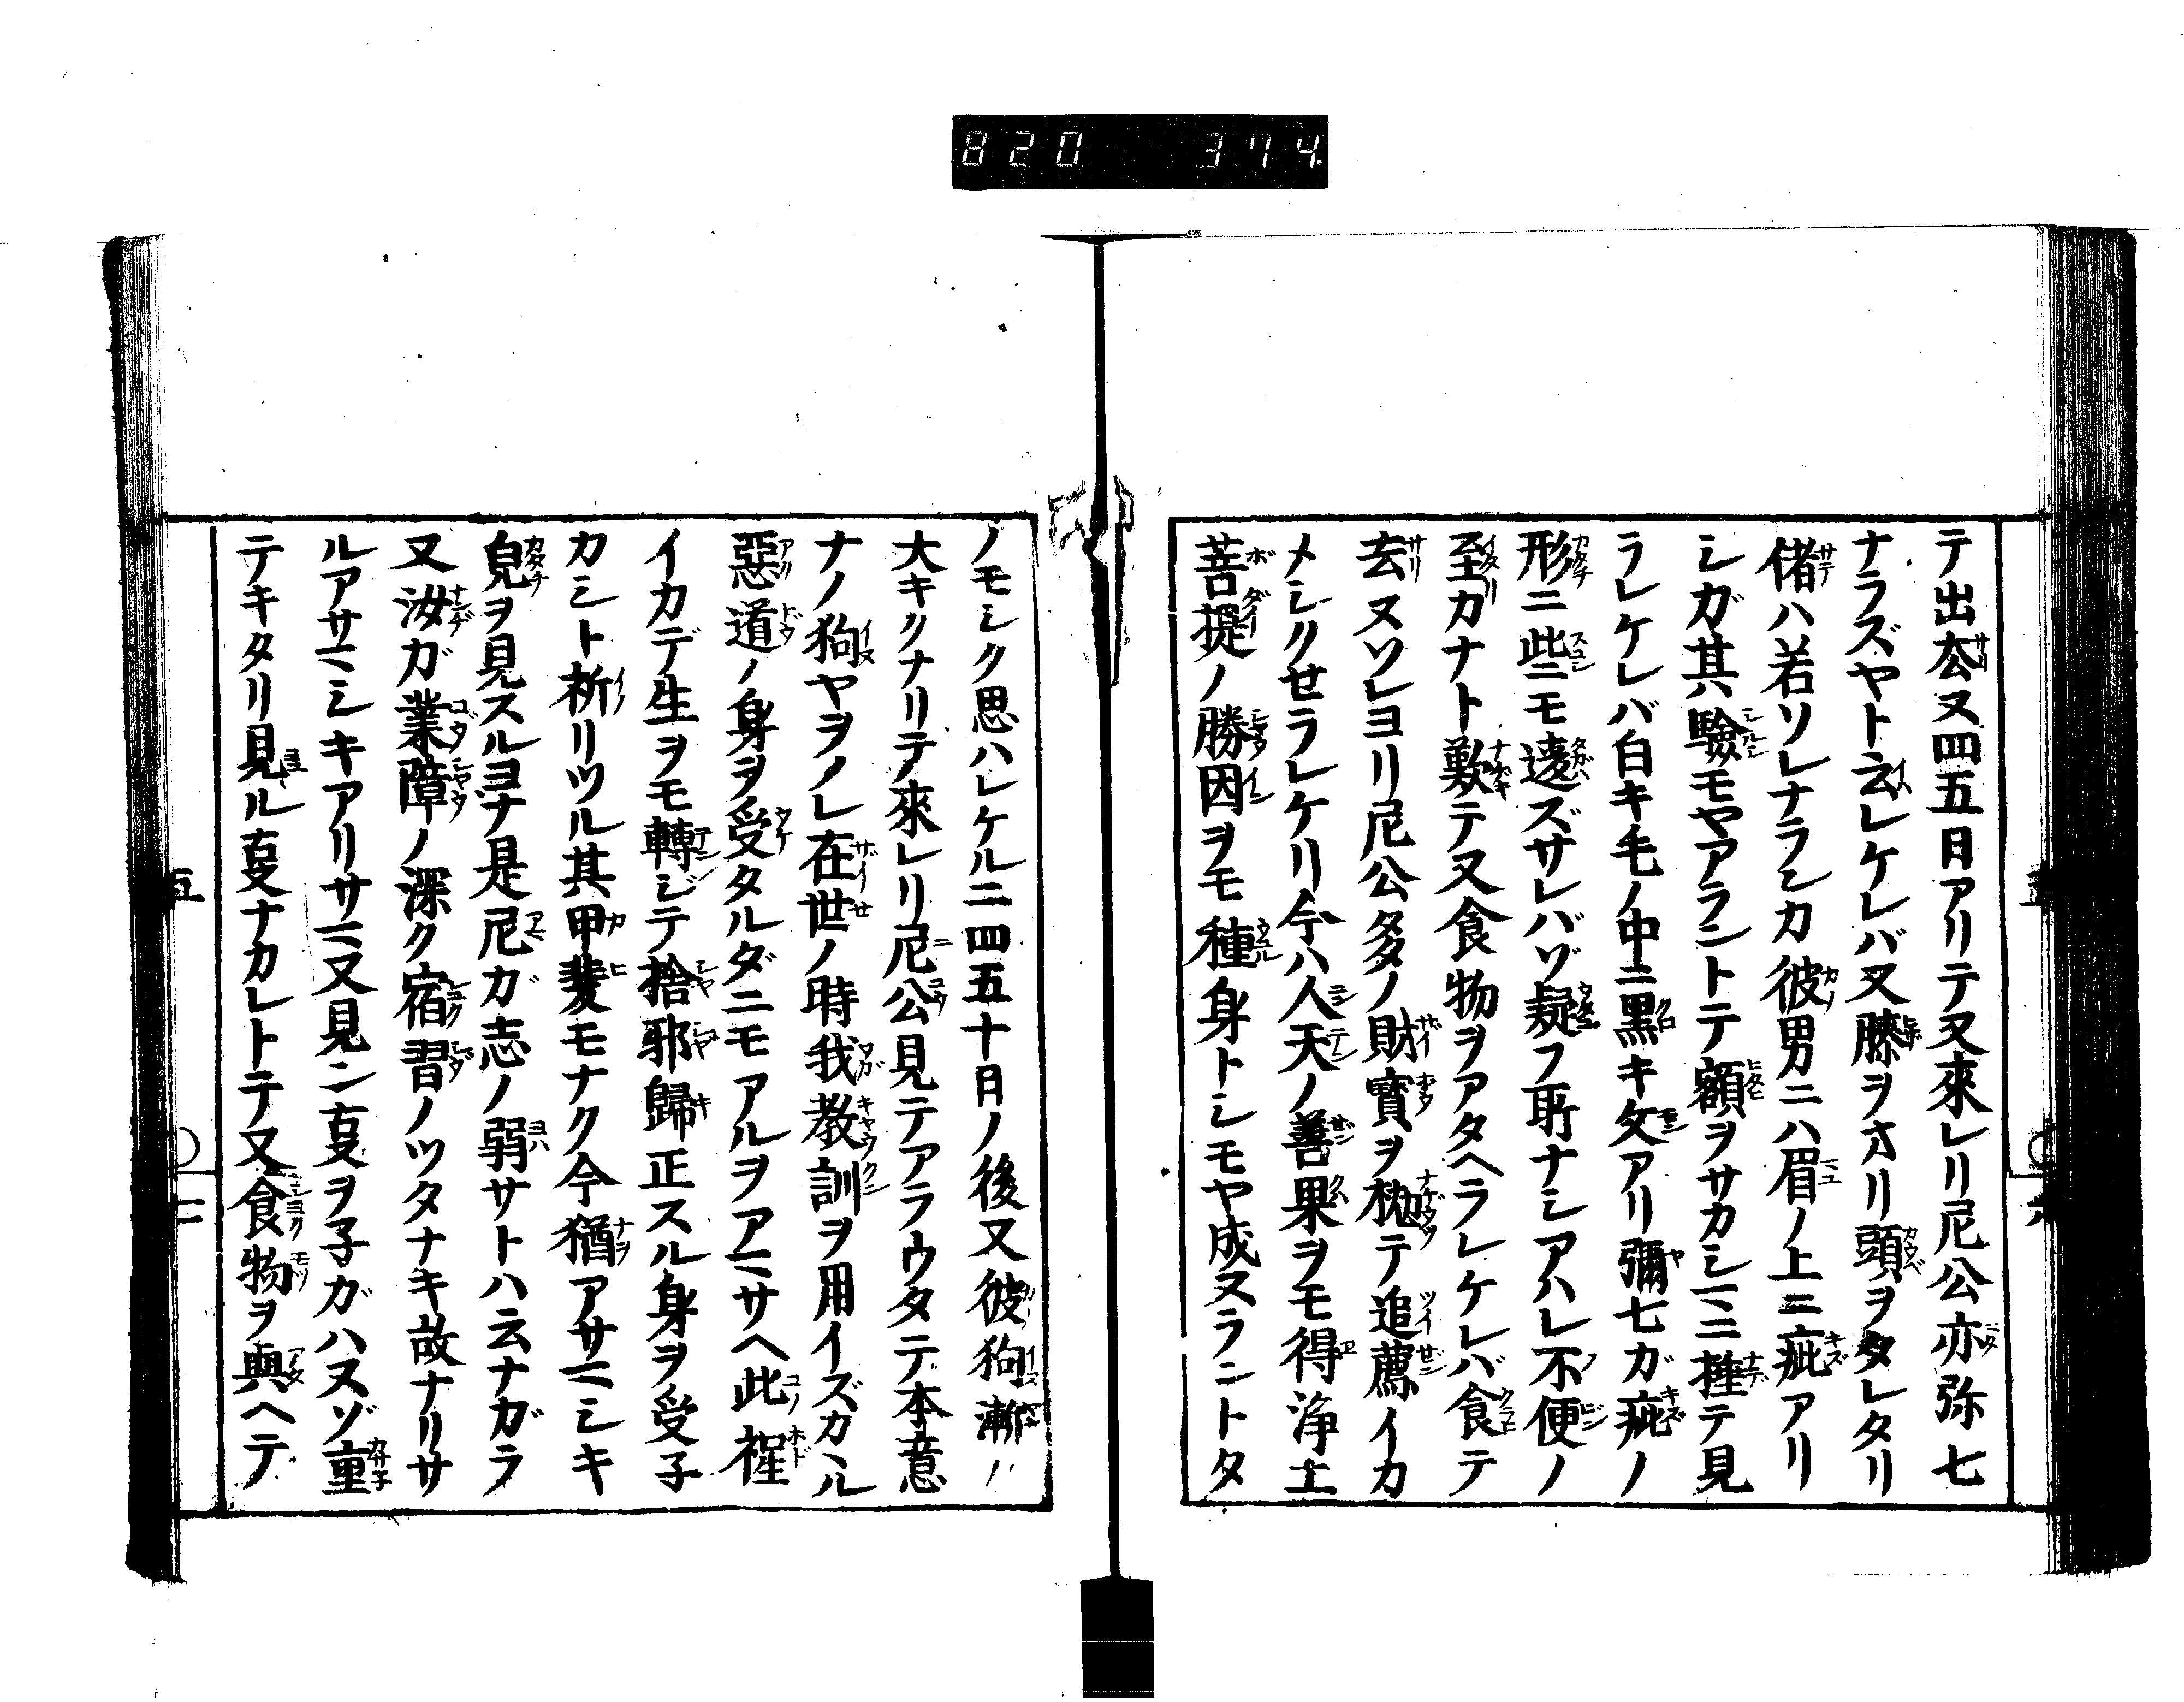 820 374
テ出厺ヌ四五日アリテ又來レリ尼公亦弥七
ナラズヤト云レケレバ又膝ヲオリ頭ヲタレタリ
偖ハ若ソレナラシカ彼男ニハ眉ノ上ニ疵アリ
シガ其験モヤアラントテ額ヲサカシマニ捶テ見
ラレケレバ白キ毛ノ中ニ黒キ文アリ彌七ガ疵ノ
形ニ些ニモ違ズサレバゾ疑フ所ナシアハレ不便ノ
至カナト歎テ又食物ヲアタヘラレケレバ食テ
去ヌソレヨリ尼公多ノ財寶ヲ抛テ追薦イカ
メシクせラレケリ今ハ人天ノ善果ヲモ得浄土
菩提ノ勝因ヲモ種身トシモヤ成ヌラントタ
ノモシク思ハレケルニ四五十日ノ後又彼狗漸〃
大キクナリテ來レリ尼公見テアラウタテ本意
ナノ狗ヤヲノレ在世ノ時我教訓ヲ用イズカヽル
惡道ノ身ヲ受タルダニモアルヲアマサヘ此程
イカデ生ヲモ轉ジテ捨邪歸正スル身ヲ受子
カシト祈リツル其甲斐モナク今猶アサマシキ
皃ヲ見スルヿナ是尼ガ志ノ弱サトハ云ナガラ
又汝ガ業障ノ深ク宿習ノツタナキ故ナリサ
ルアサマシキアリサマ又見ン叓ヲ子ガハヌゾ重
テキタリ見ル叓ナカレトテ又食物ヲ與ヘテ
五 〇二